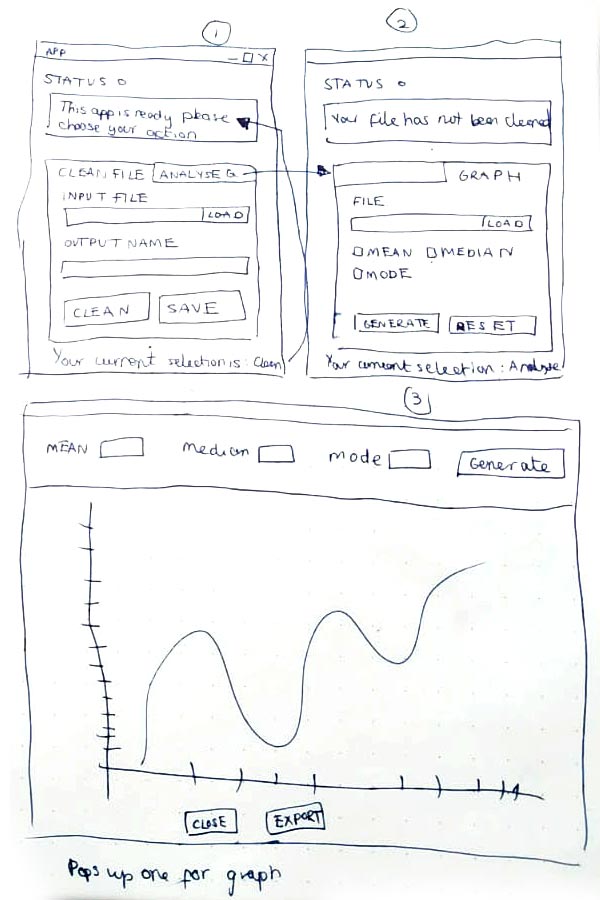 1
APP
STATUS
This app is ready please
choose your action
CLEAN FILE ANALYSE
INPUT FILE
LOAD
OUTPUT NAME
CLEAN SAVE
Your current selection is: Clean
2
STATUS
Your file has not been cleaned
GRAPH
FILE
LOAD
MEAN MEDIAN
MODE
GENERATE RESET
Your current selection: Analyse
3
MEAN Median Mode Generate
CLOSE EXPORT
Pops up one for graph